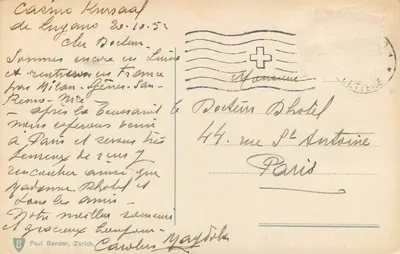 Casino Kursaal
de Lugano 20.10.5
Cher Docteur.
Sommes encore en Suisse
et rentrerons en France
par Milan-Gênes-San-
Remo-Nice
après la Toussaint
nous espérons venir
à Paris et serons très
heureux de vous y
rencontrer ainsi que
Madame Bhotel et
tous les amis
Notre meilleur souvenir
et gracieux bonjour
Carolus
Monsieur
le Docteur Bhotel
44. rue St Antoine
Paris
Paul Bender, Zürich.